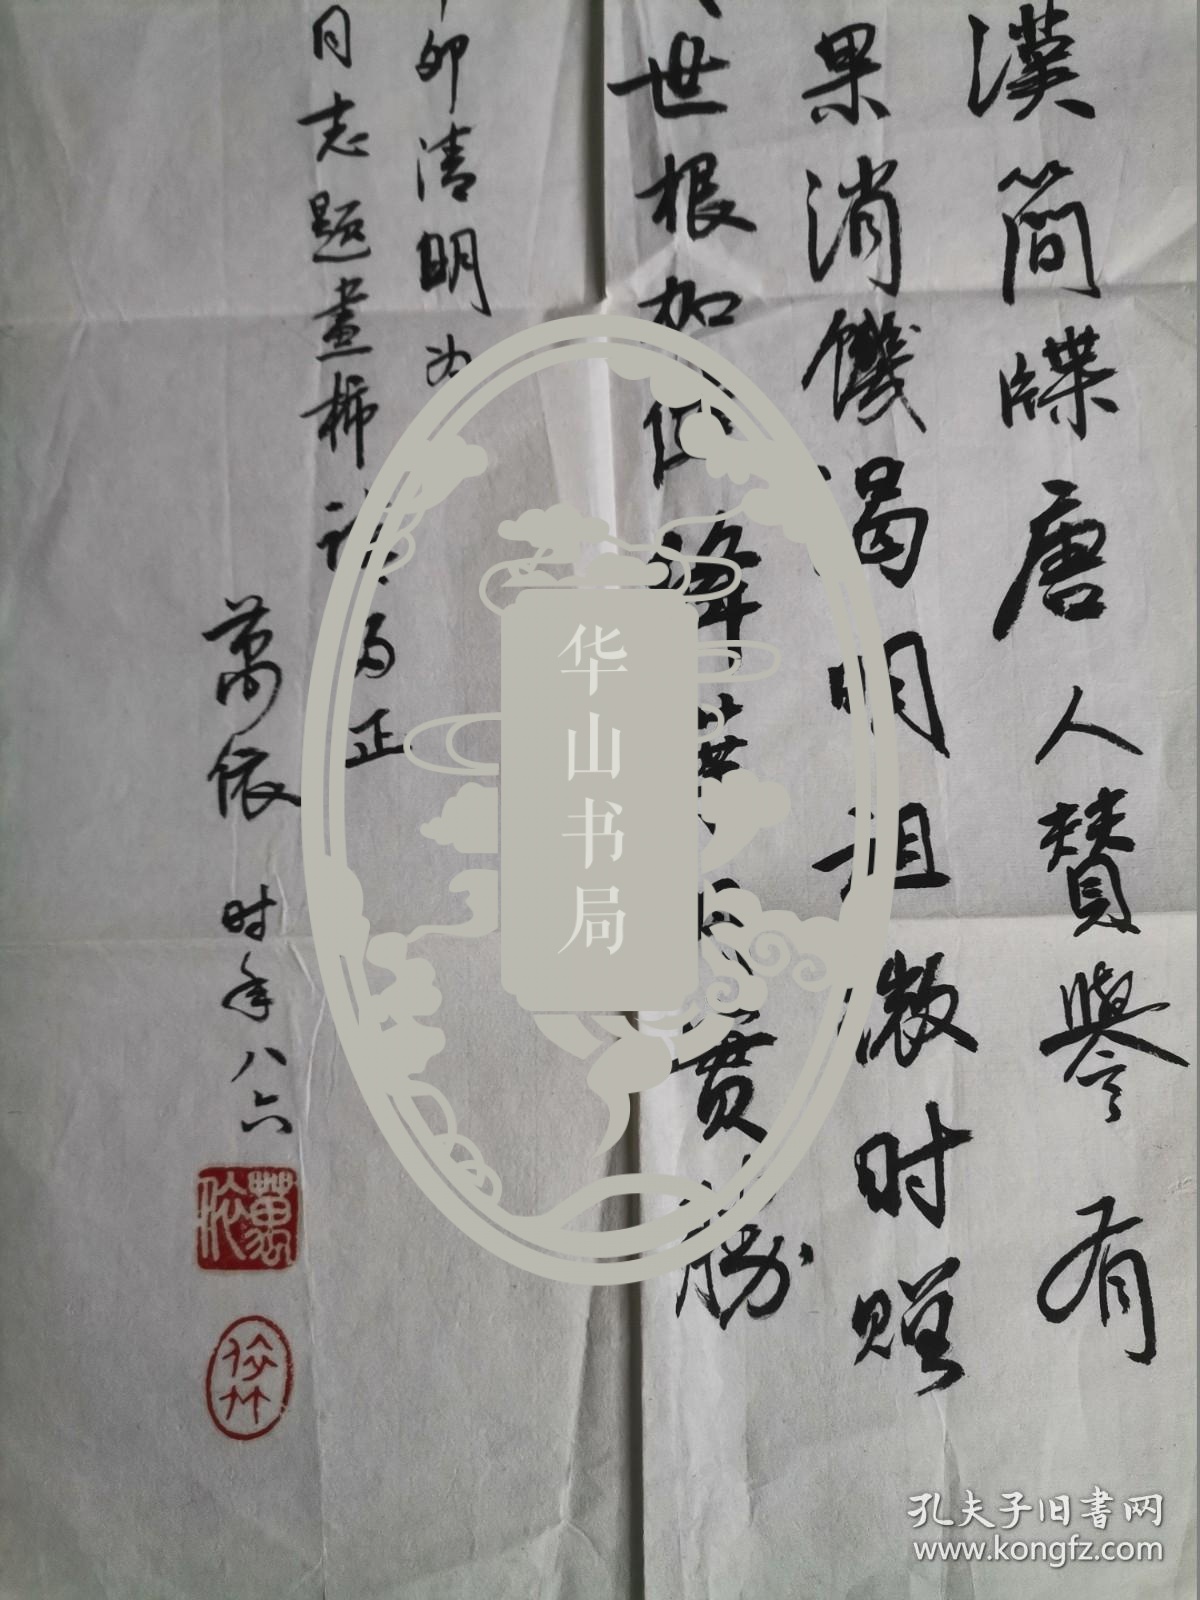 漢簡牒唐人贊譽有
果消饑渴明祖微时贈
世根
貫勝
卯清明为
同志題畫柿
正
萬依时年八六
萬依
华山书局
孔夫子旧書网
www.kongfz.com